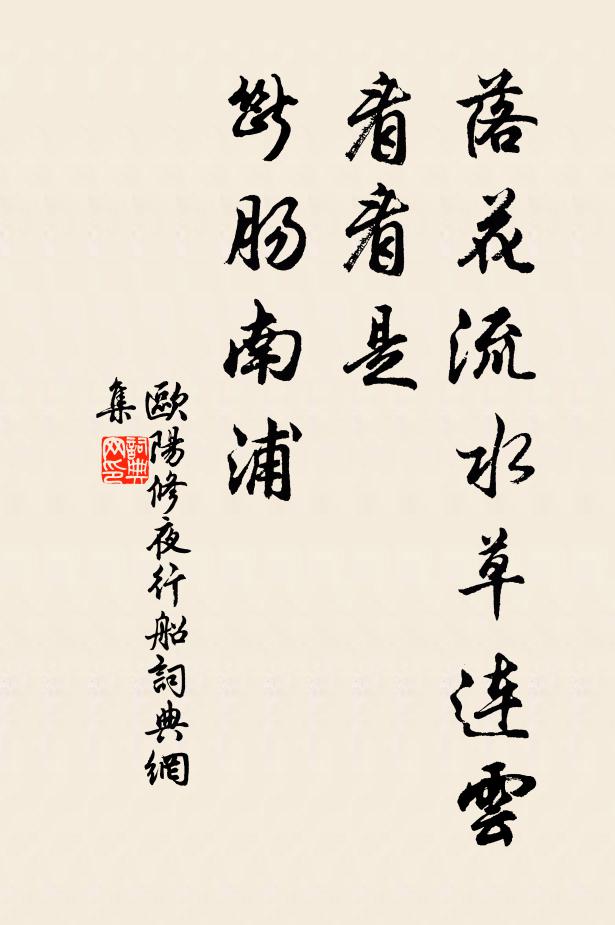 落花流水草連雲
看看是
斷腸南浦
歐陽修夜行船詞典網
集
詞典
网印